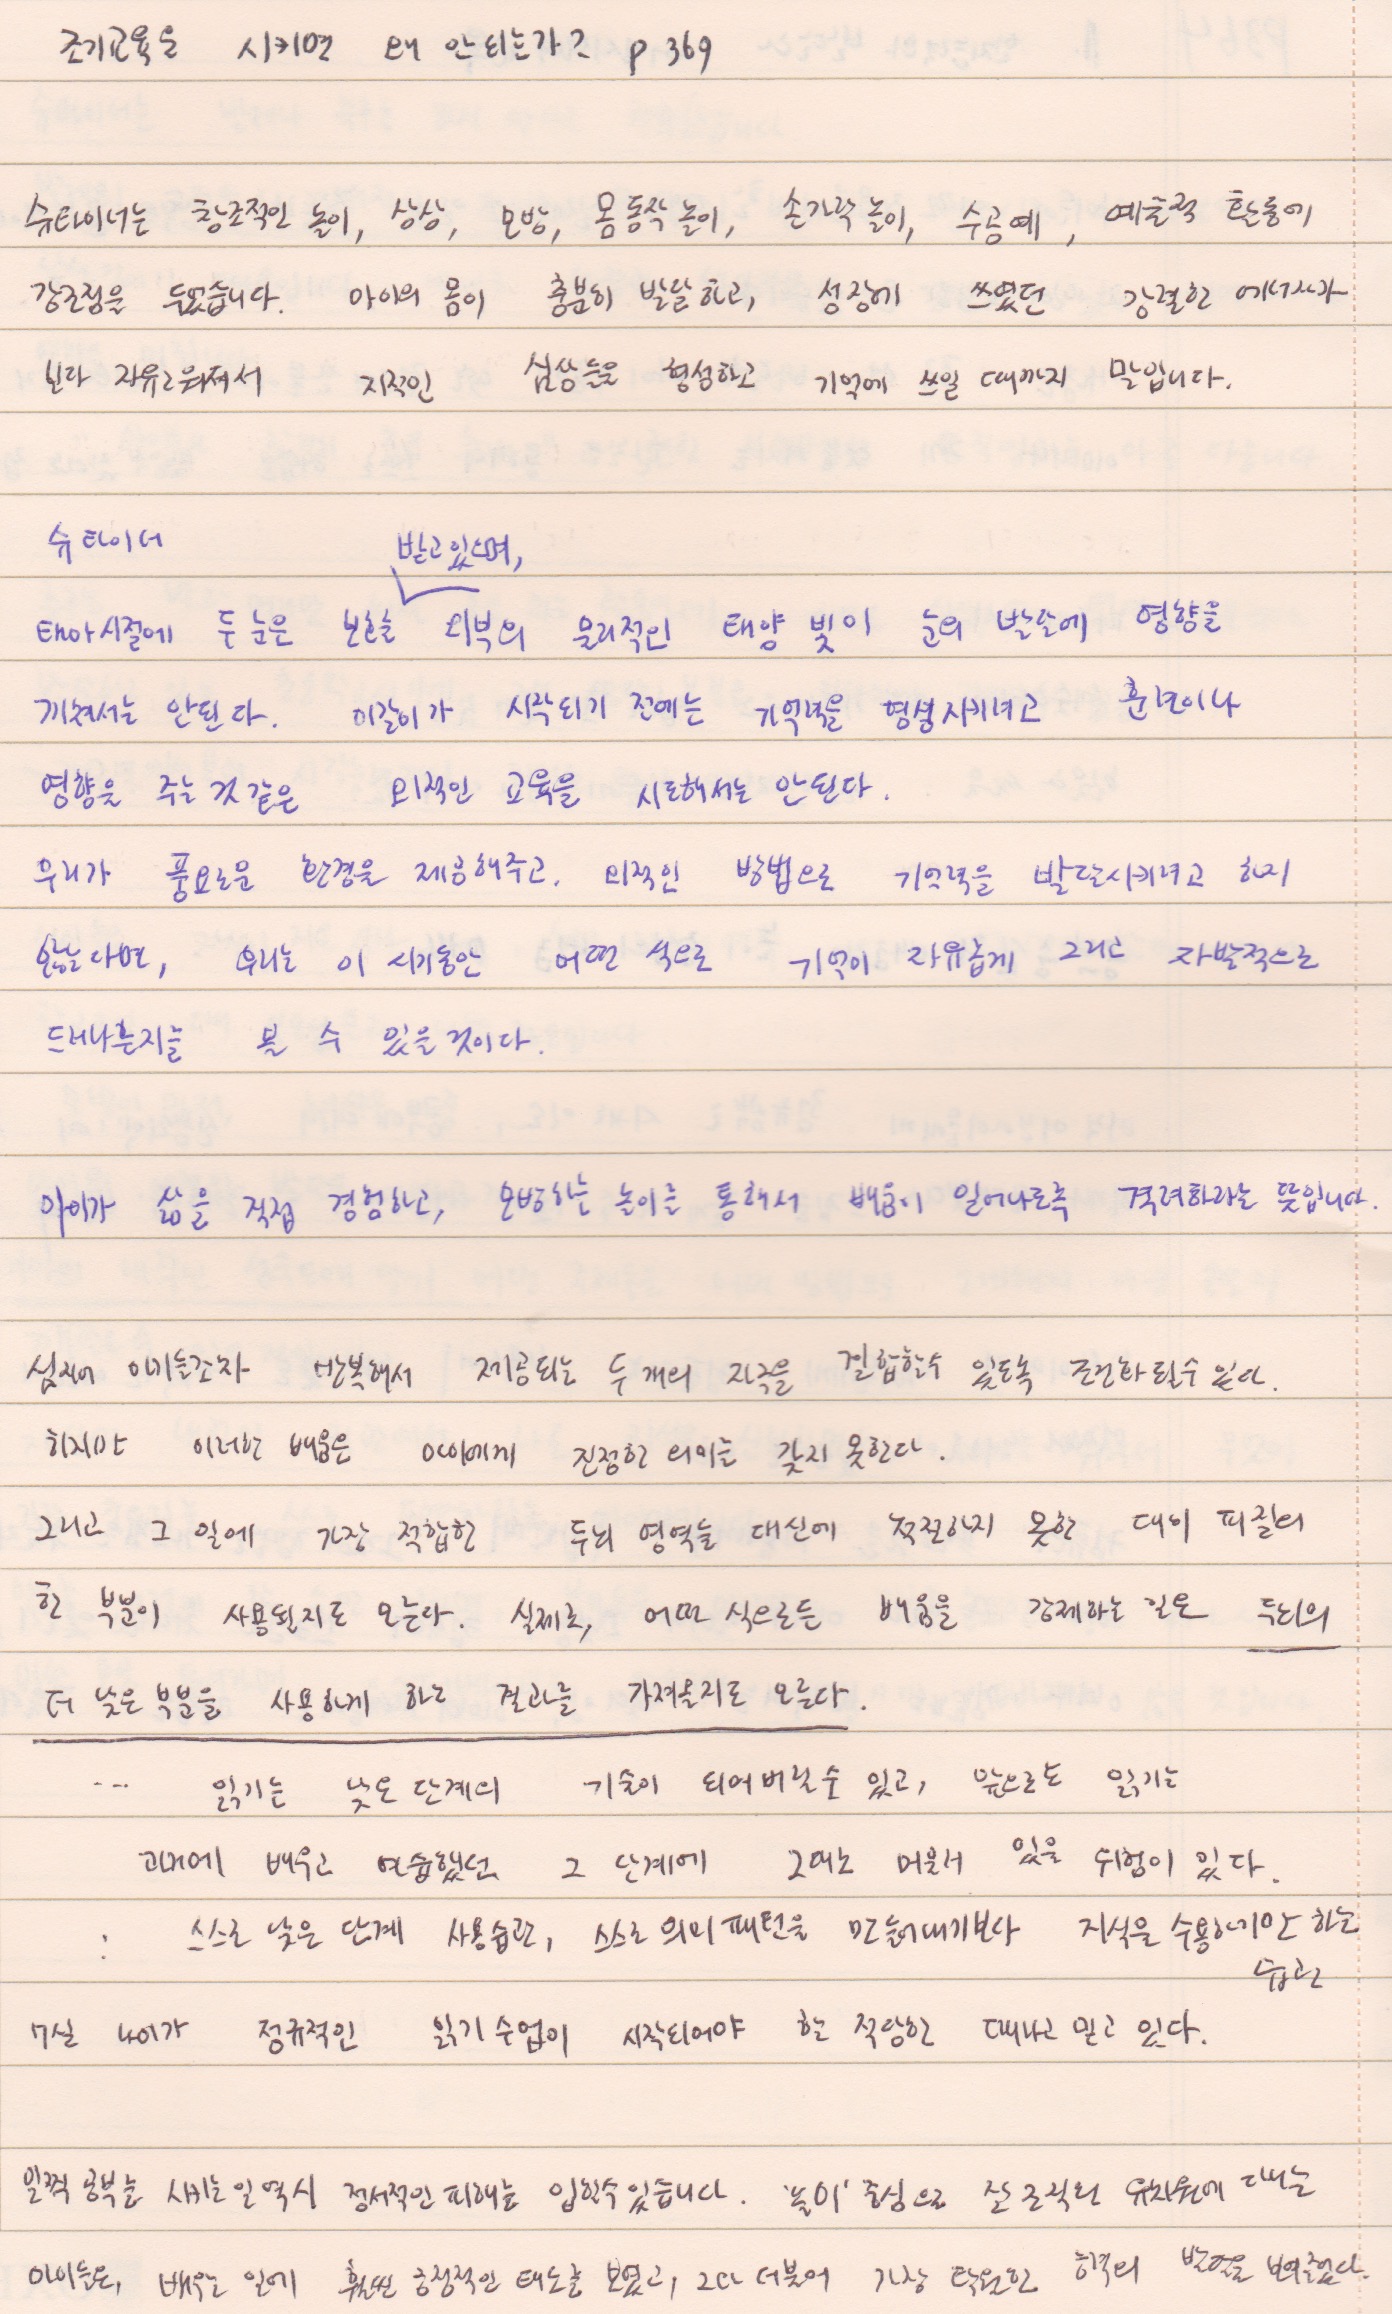 조기교육을 시키면 왜 안되는가? p 369
슈타이너는 창조적인 놀이, 상상, 모방, 몸동작 놀이, 손가락 놀이, 수공예, 예술적 활동에
강조점을 두었습니다. 아이의 몸이 충분히 발달하고, 성장에 쓰였던 강렬한 에너지가
보다 자유로워져서 지적인 심상들을 형성하고 기억에 쓰일 때까지 말입니다.
슈타이너
받고있으며,
태아시절에 두 눈은 보호를 외부의 물리적인 태양 빛이 눈의 발달에 영향을
끼쳐서는 안된다. 이갈이가 시작되기 전에는 기억력을 형성시키려고 훈련이나
영향을 주는 것 같은 외적인 교육을 시도해서는 안된다.
우리가 풍요로운 환경을 제공해주고, 외적인 방법으로 기억력을 발달시키려고 하지
않는다면, 우리는 이 시기동안 어떤 식으로 기억이 자유롭게 그리고 자발적으로
드러나는지를 볼 수 있을 것이다.
아이가 삶을 직접 경험하고, 모방하는 놀이를 통해서 배움이 일어나도록 격려하라는 뜻입니다.
심지어 아기들조차 반복해서 제공되는 두 개의 자극을 결합할수 있도록 조건화 될수 있다.
하지만 이러한 배움은 아이에게 진정한 의미를 갖지 못한다.
그리고 그 일에 가장 적합한 두뇌 영역들 대신에 적절하지 못한 대뇌 피질의
한 부분이 사용될지도 모른다. 실제로, 어떤 식으로든 배움을 강제하는 일은 두뇌의
더 낮은 부분을 사용하게 하는 결과를 가져올지도 모른다.
... 읽기는 낮은 단계의 기술이 되어버릴 수 있고, 앞으로도 읽기는
과거에 배우고 연습했던 그 단계에 그대로 머물러 있을 위험이 있다.
: 스스로 낮은 단계 사용습관, 스스로 의미 패턴을 만들어내기보다 지식을 수용하기만 하는
습관
7살 나이가 정규적인 읽기 수업이 시작되어야 할 적당한 때라고 믿고 있다.
일찍 공부를 시키는 일 역시 정서적인 피해를 입힐수있습니다. '놀이' 중심으로 잘 조직된 유치원에 다니는
아이들은, 배우는 일에 훨씬 긍정적인 태도를 보였고, 그와 더불어 가장 탁월한 학력의 발달을 보여줬다.